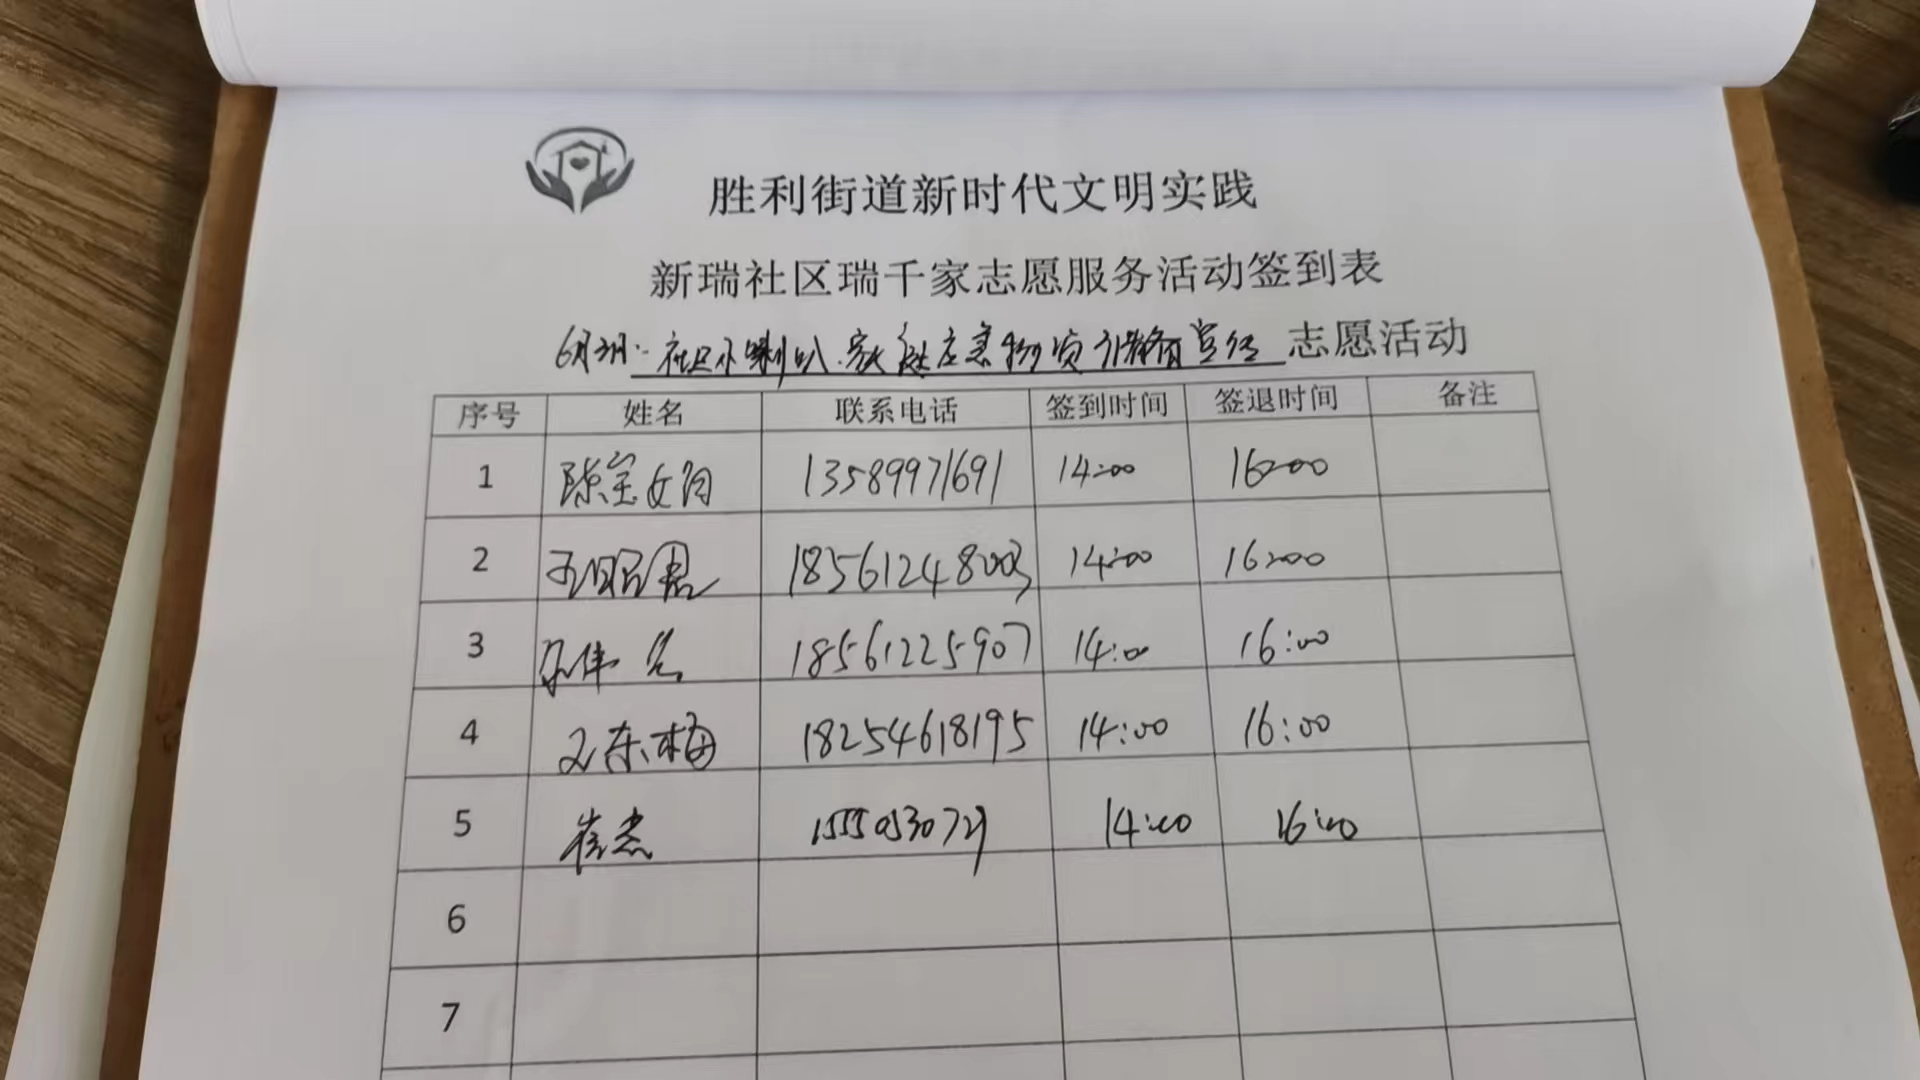 胜利街道新时代文明实践
新瑞社区瑞千家志愿服务活动签到表
社区小喇叭.家庭应急物资储备宣传 志愿活动
序号 姓名 联系电话 签到时间 签退时间 备注
1 陈宝娟 13589971691 14:00 16:00
2 王昭君 18561248003 14:00 16:00
3 18561225907 14:00 16:00
4 东梅 18254618195 14:00 16:00
5 崔杰 14:00 16:00
6
7